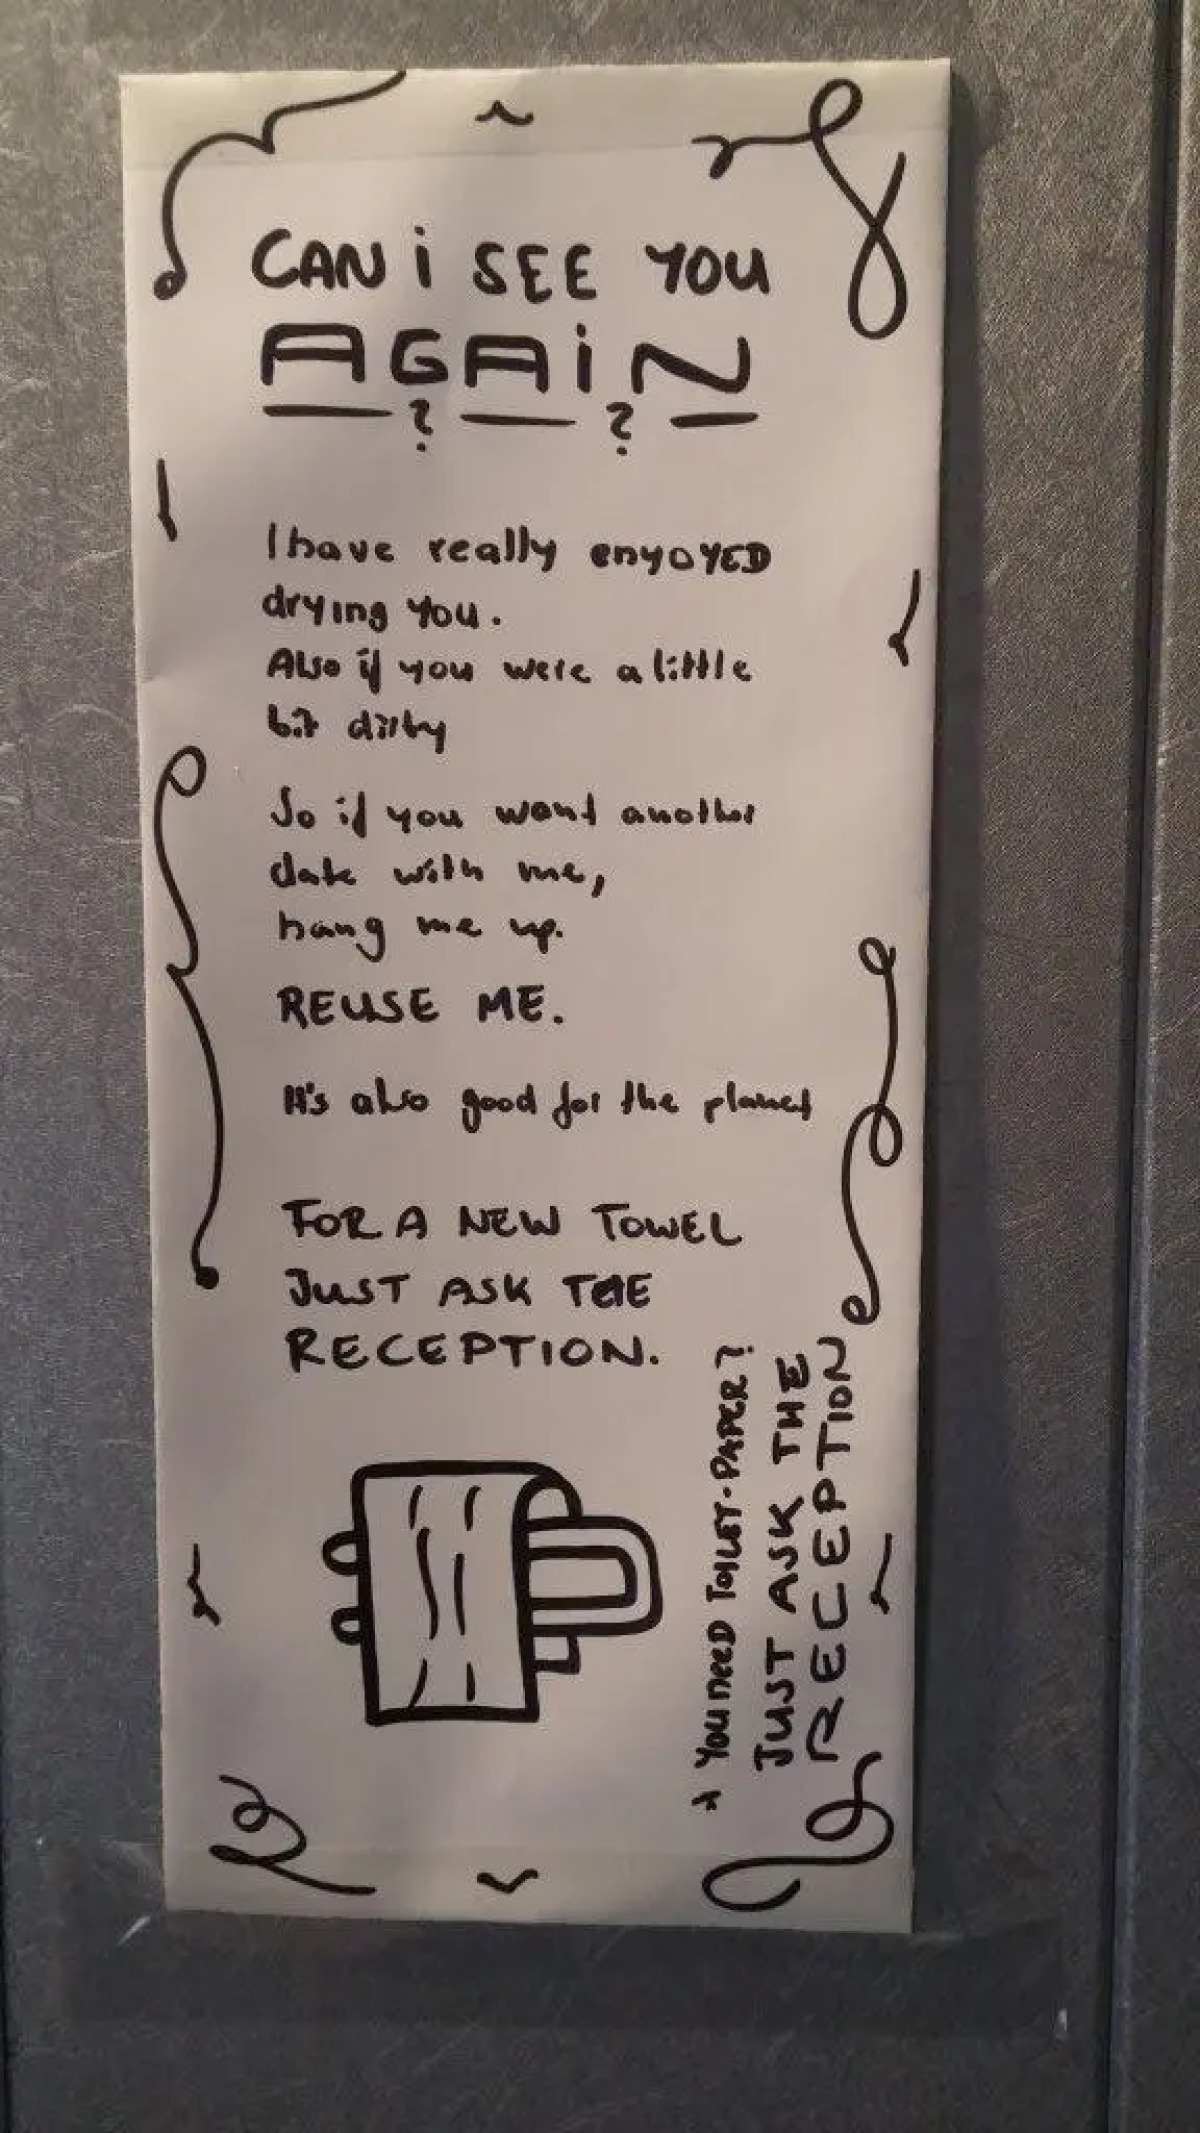 CAN i SEE YOU
AGAiN
? ?
I have really enyoYED
drying You.
Also if you were a little
bit dirty
So if you want another
date with me,
hang me up.
REUSE ME.
It's also good for the planet
FOR A NEW TOWEL
JUST ASK THE
RECEPTION.
You need TOILET-PAPER?
JUST ASK THE
RECEPTION